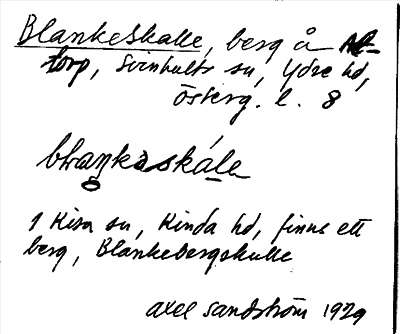 Blankeskalle, berg å Al-
torp, Svinhults sn, Ydre hd,
Österg. l. 8
blaŋkəskálə
I Kisa sn, Kinda hd, finns ett
berg, Blankebergskulle
Axel Sandström 1929